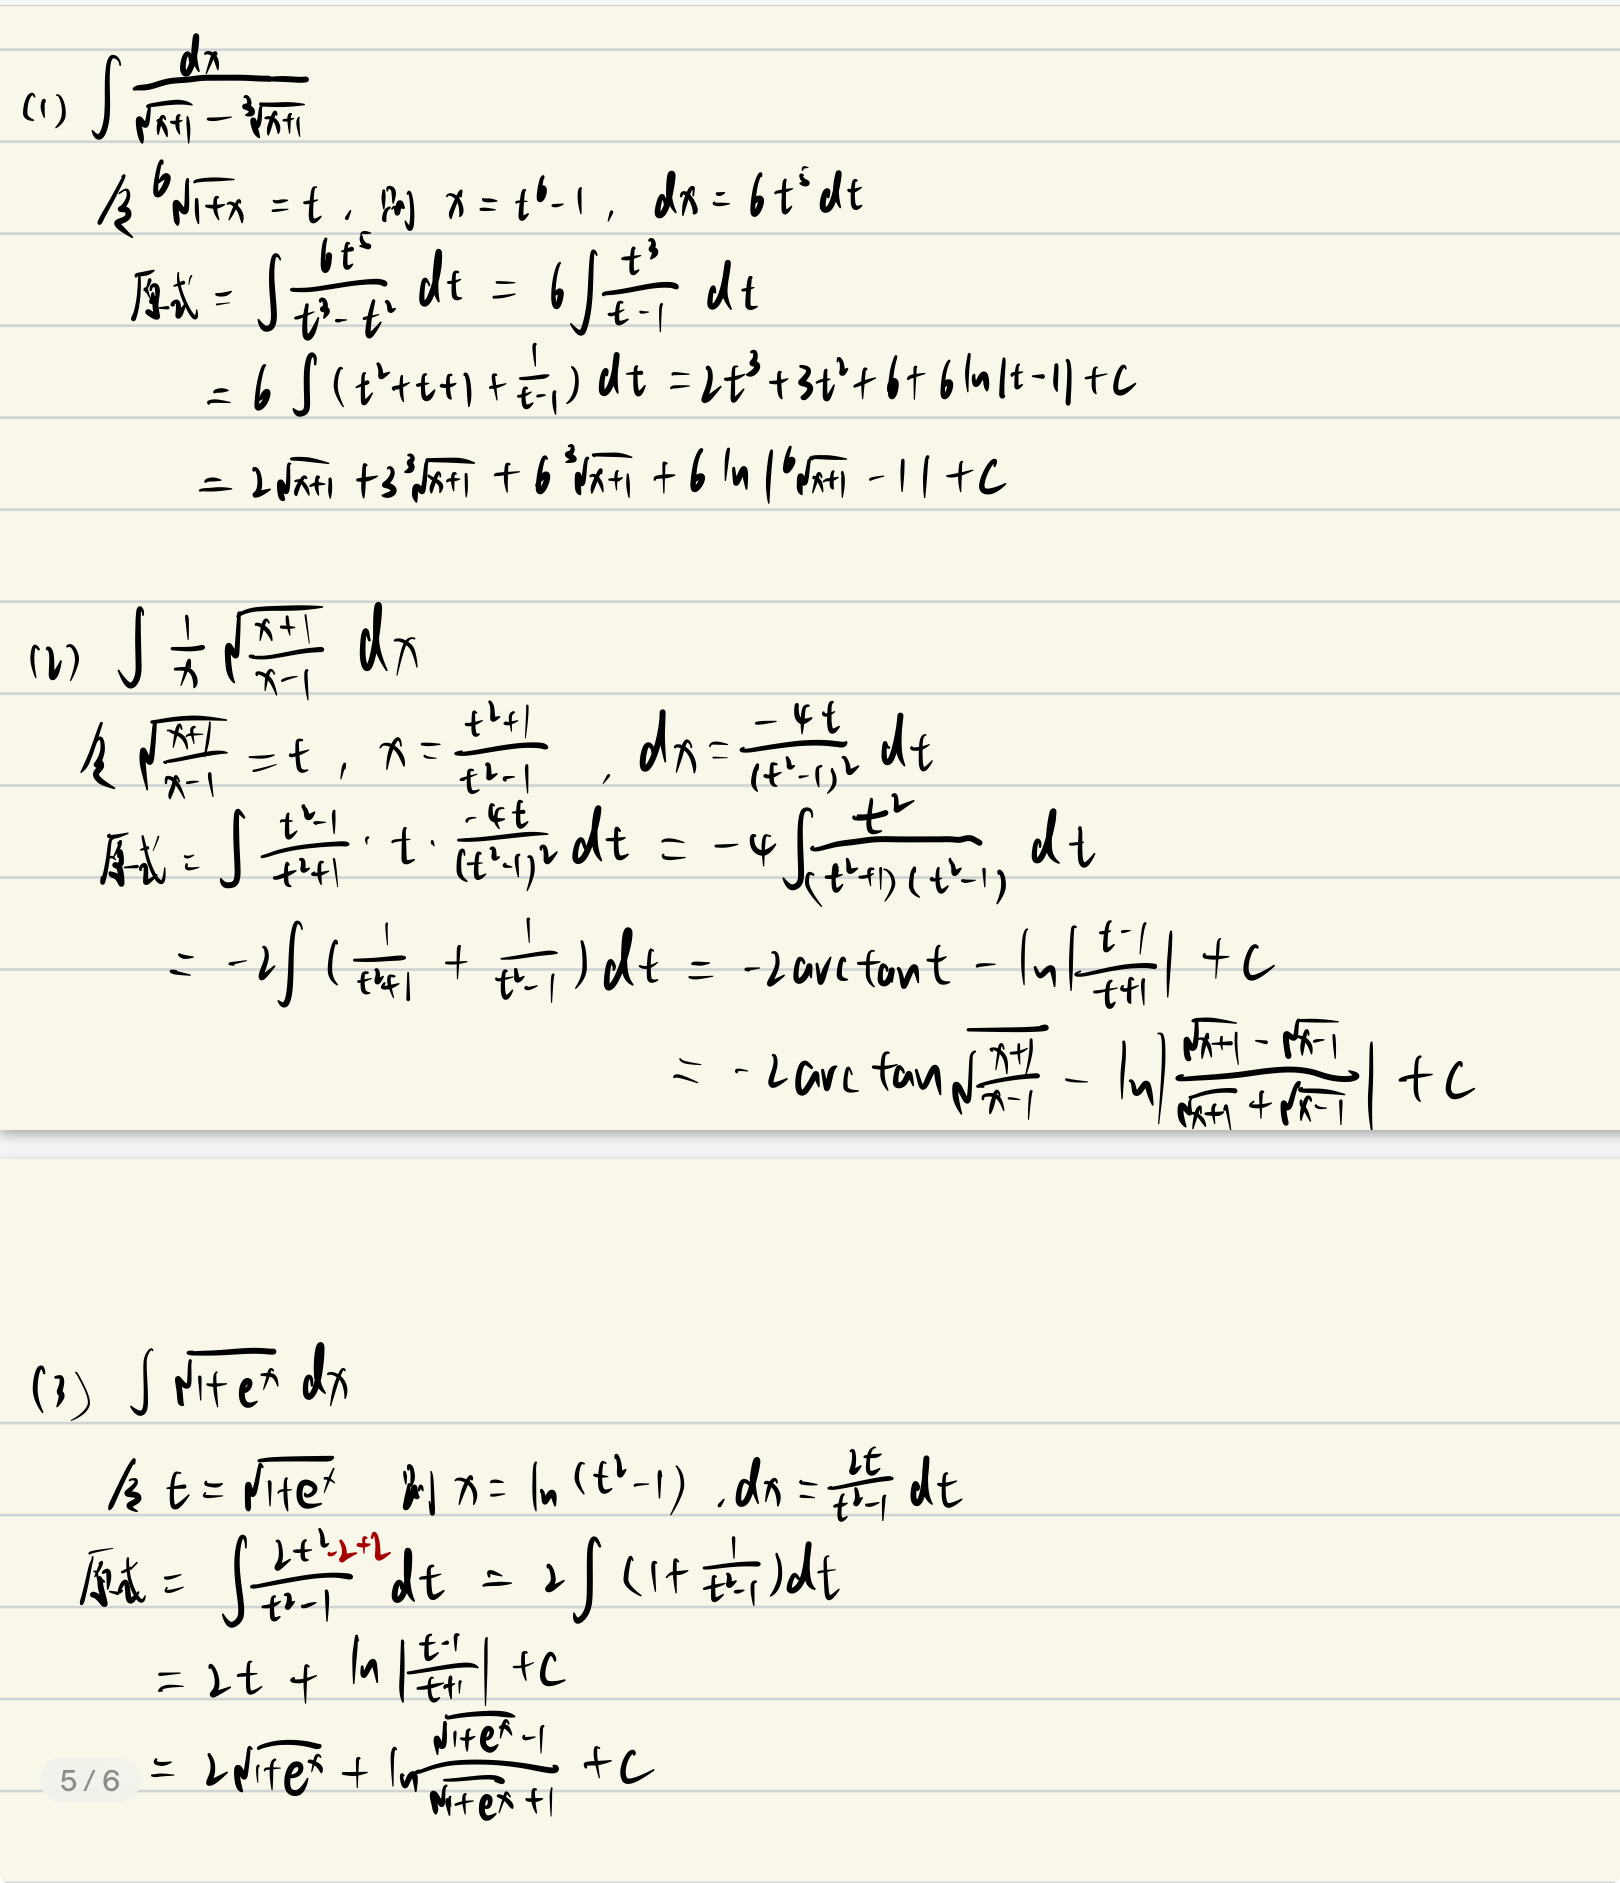 (1) ∫ dx/(√(x+1) - ³√(x+1))
令 ⁶√(1+x) = t , 则 x = t⁶-1 , dx = 6t⁵dt
原式 = ∫ 6t⁵/(t³-t²) dt = 6∫ t³/(t-1) dt
= 6∫(t²+t+1+1/(t-1))dt = 2t³+3t²+6+6ln|t-1|+C
= 2√(x+1) + 3³√(x+1) + 6³√(x+1) + 6ln|⁶√(x+1) - 1| + C
(2) ∫ 1/x √((x+1)/(x-1)) dx
令 √((x+1)/(x-1)) = t , x = (t²+1)/(t²-1) , dx = -4t/(t²-1)² dt
原式 = ∫ (t²-1)/(t²+1) · t · -4t/(t²-1)² dt = -4∫ t²/((t²+1)(t²-1)) dt
= -2∫(1/(t²+1) + 1/(t²-1))dt = -2arctant - ln|(t-1)/(t+1)| + C
= -2arctan√((x+1)/(x-1)) - ln|(√(x+1) - √(x-1))/(√(x+1) + √(x-1))| + C
(3) ∫ √(1+eˣ) dx
令 t = √(1+eˣ) 则 x = ln(t²-1) , dx = 2t/(t²-1) dt
原式 = ∫ (2t²-2+2)/(t²-1) dt = 2∫(1+1/(t²-1))dt
= 2t + ln|(t-1)/(t+1)| + C
= 2√(1+eˣ) + ln (√(1+eˣ) - 1)/(√(1+eˣ) + 1) + C
5/6